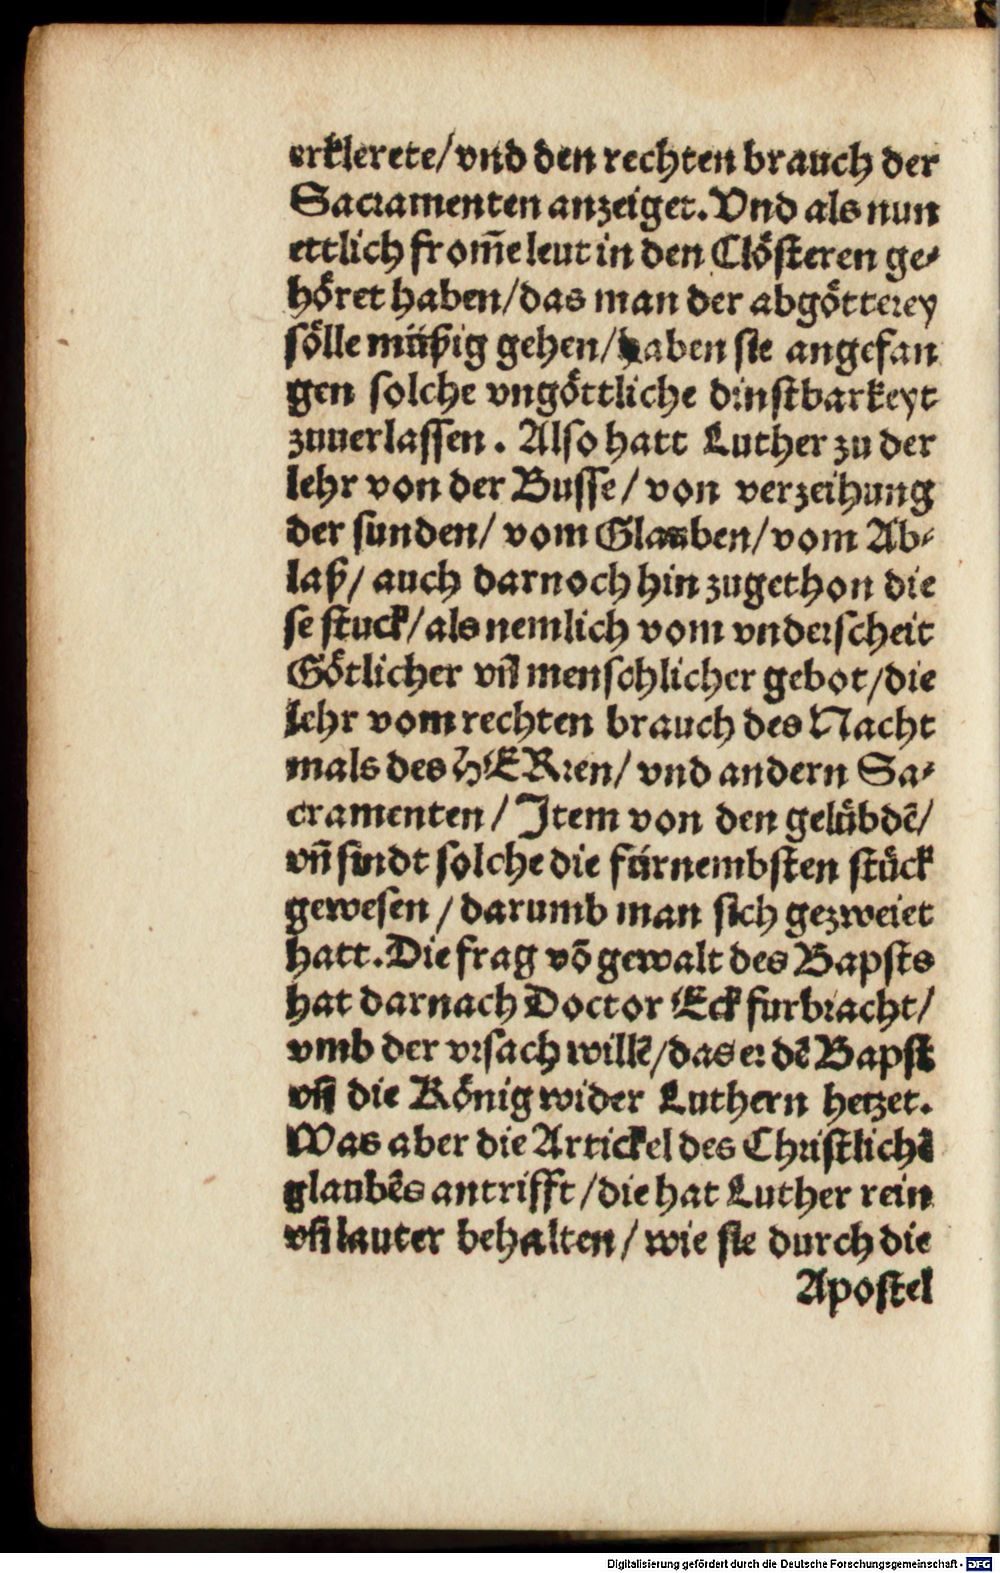 erklerete/vnd den rechten brauch der
Sacramenten anzeiget. Vnd als nun
ettlich from̄e leut in den Clöſteren ge⸗
höret haben/das man der abgötterey
ſölle müßig gehen/haben ſie angefan
gen ſolche vngöttliche dinſtbarkeyt
zuuerlaſſen. Alſo hatt Luther zu der
lehr von der Buſſe/von verzeihung
der ſunden/ vom Glauben/vom Ab⸗
laß/ auch darnoch hin zugethon die
ſe ſtuck/als nemlich vom vnderſcheit
Götlicher vn̄ menſchlicher gebot/die
lehr vom rechten brauch des Nacht
mals des HERren/ vnd andern Sa⸗
cramenten/ Item von den gelübdē/
vn̄ ſindt ſolche die fürnembſten ſtück
geweſen/darumb man ſich gezweiet
hatt. Die frag vō gewalt des Bapſts
hat darnach Doctor Eck furbracht/
vmb der vrſach willē/das er dē Bapſt
vn̄ die König wider Luthern hetzet.
Was aber die Artickel des Chriſtlichē
glaubēs antrifft/die hat Luther rein
vn̄ lauter behalten/ wie ſie durch die
Apoſtel
Digitalisierung gefördert durch die Deutsche Forschungsgemeinschaft - DFG